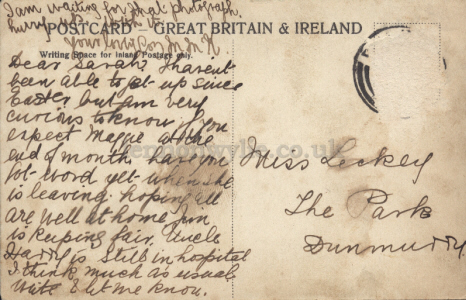 I am waiting for that photograph.
hurry up with it.
POSTCARD GREAT BRITAIN & IRELAND
Your loving
Writing Space for inland Postage only.
Dear Sarah, I havent
been able to get up since
Easter but am very
curious to know if you
expect Maggie at the
end of month. have you
got word yet when she
is leaving. hoping all
are well at home. mum
is keeping fair. Uncle
Harry is still in hospital
I think, much as usual
write & let me know.
Miss Leckey
The Park
Dunmurry.